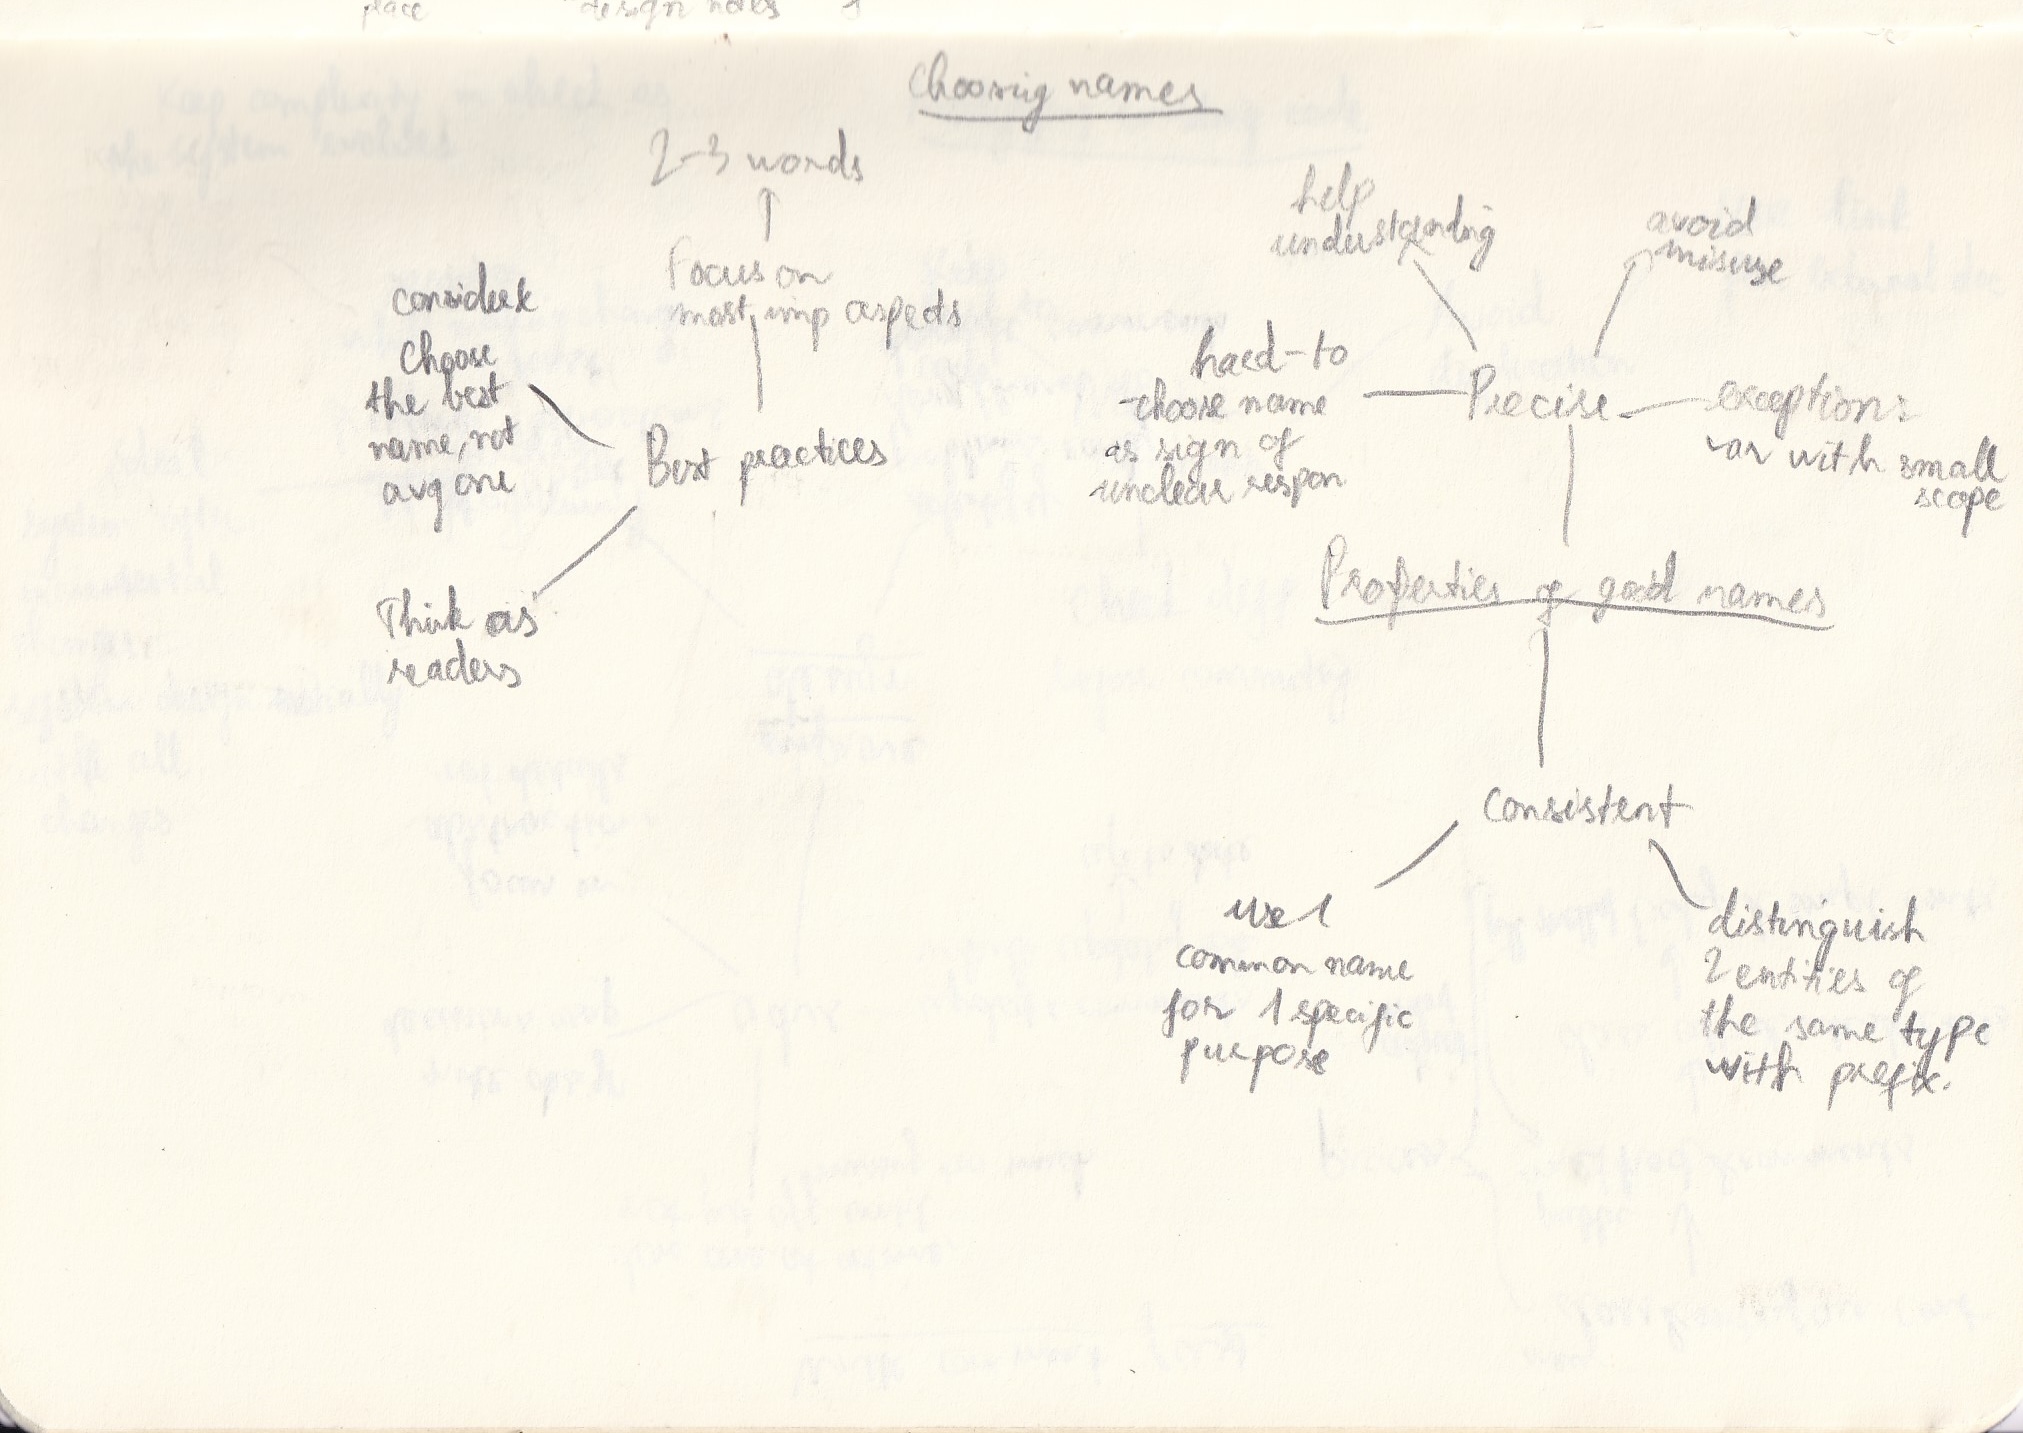 place design notes
Choosing names
2-3 words
Focus on
most imp aspects
Choose
the best
name, not
avg one
Best practices
Think as
readers
help
understanding
avoid
misuse
hard-to
-choose name
as sign of
unclear respon
Precise
exceptions
var with small
scope
Properties of good names
Consistent
use 1
common name
for 1 specific
purpose
distinguish
2 entities of
the same type
with prefix.